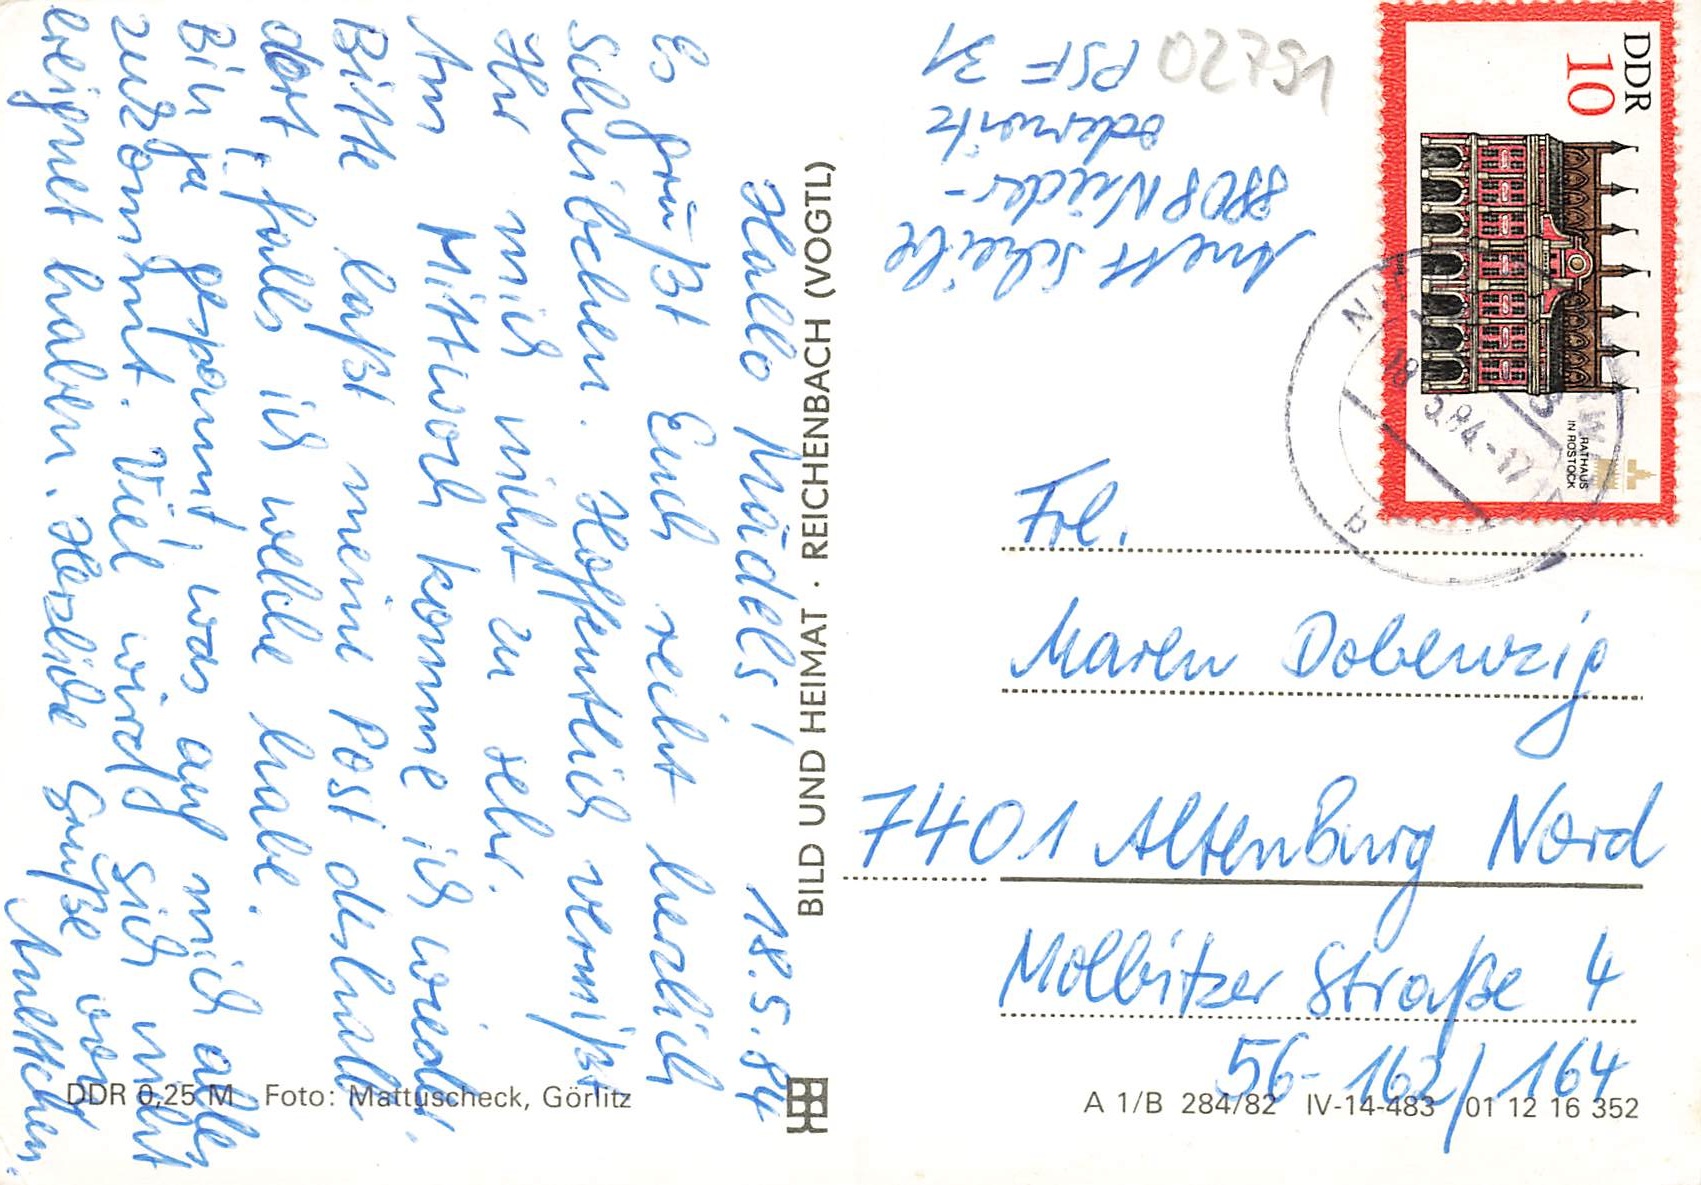 18.5.84
Hallo Mädels!
Es grüßt Euch recht herzlich
Scheibchen. Hoffentlich vermißt
Ihr mich nicht zu sehr.
Am Mittwoch komme ich wieder.
Bitte laßt meine Post deshalb
dort, falls ich welche habe.
Bin ja gespannt, was auf mich alles
zukommt. Viel wird sich nicht
ereignet haben. Herzliche Grüße von
Anettchen.
BILD UND HEIMAT · REICHENBACH (VOGTL)
DDR 0,25 M Foto: Mattuscheck, Görlitz
Anett Scheibe
8808 Nieder-
oderwitz
PSF 31
02791
DDR
10
RATHAUS
IN ROSTOCK
18 5.84-17
b
Frl.
Maren Dobenzig
7401 Altenburg Nord
Molbitzer Straße 4
56-162/164
A 1/B 284/82 IV-14-483 01 12 16 352